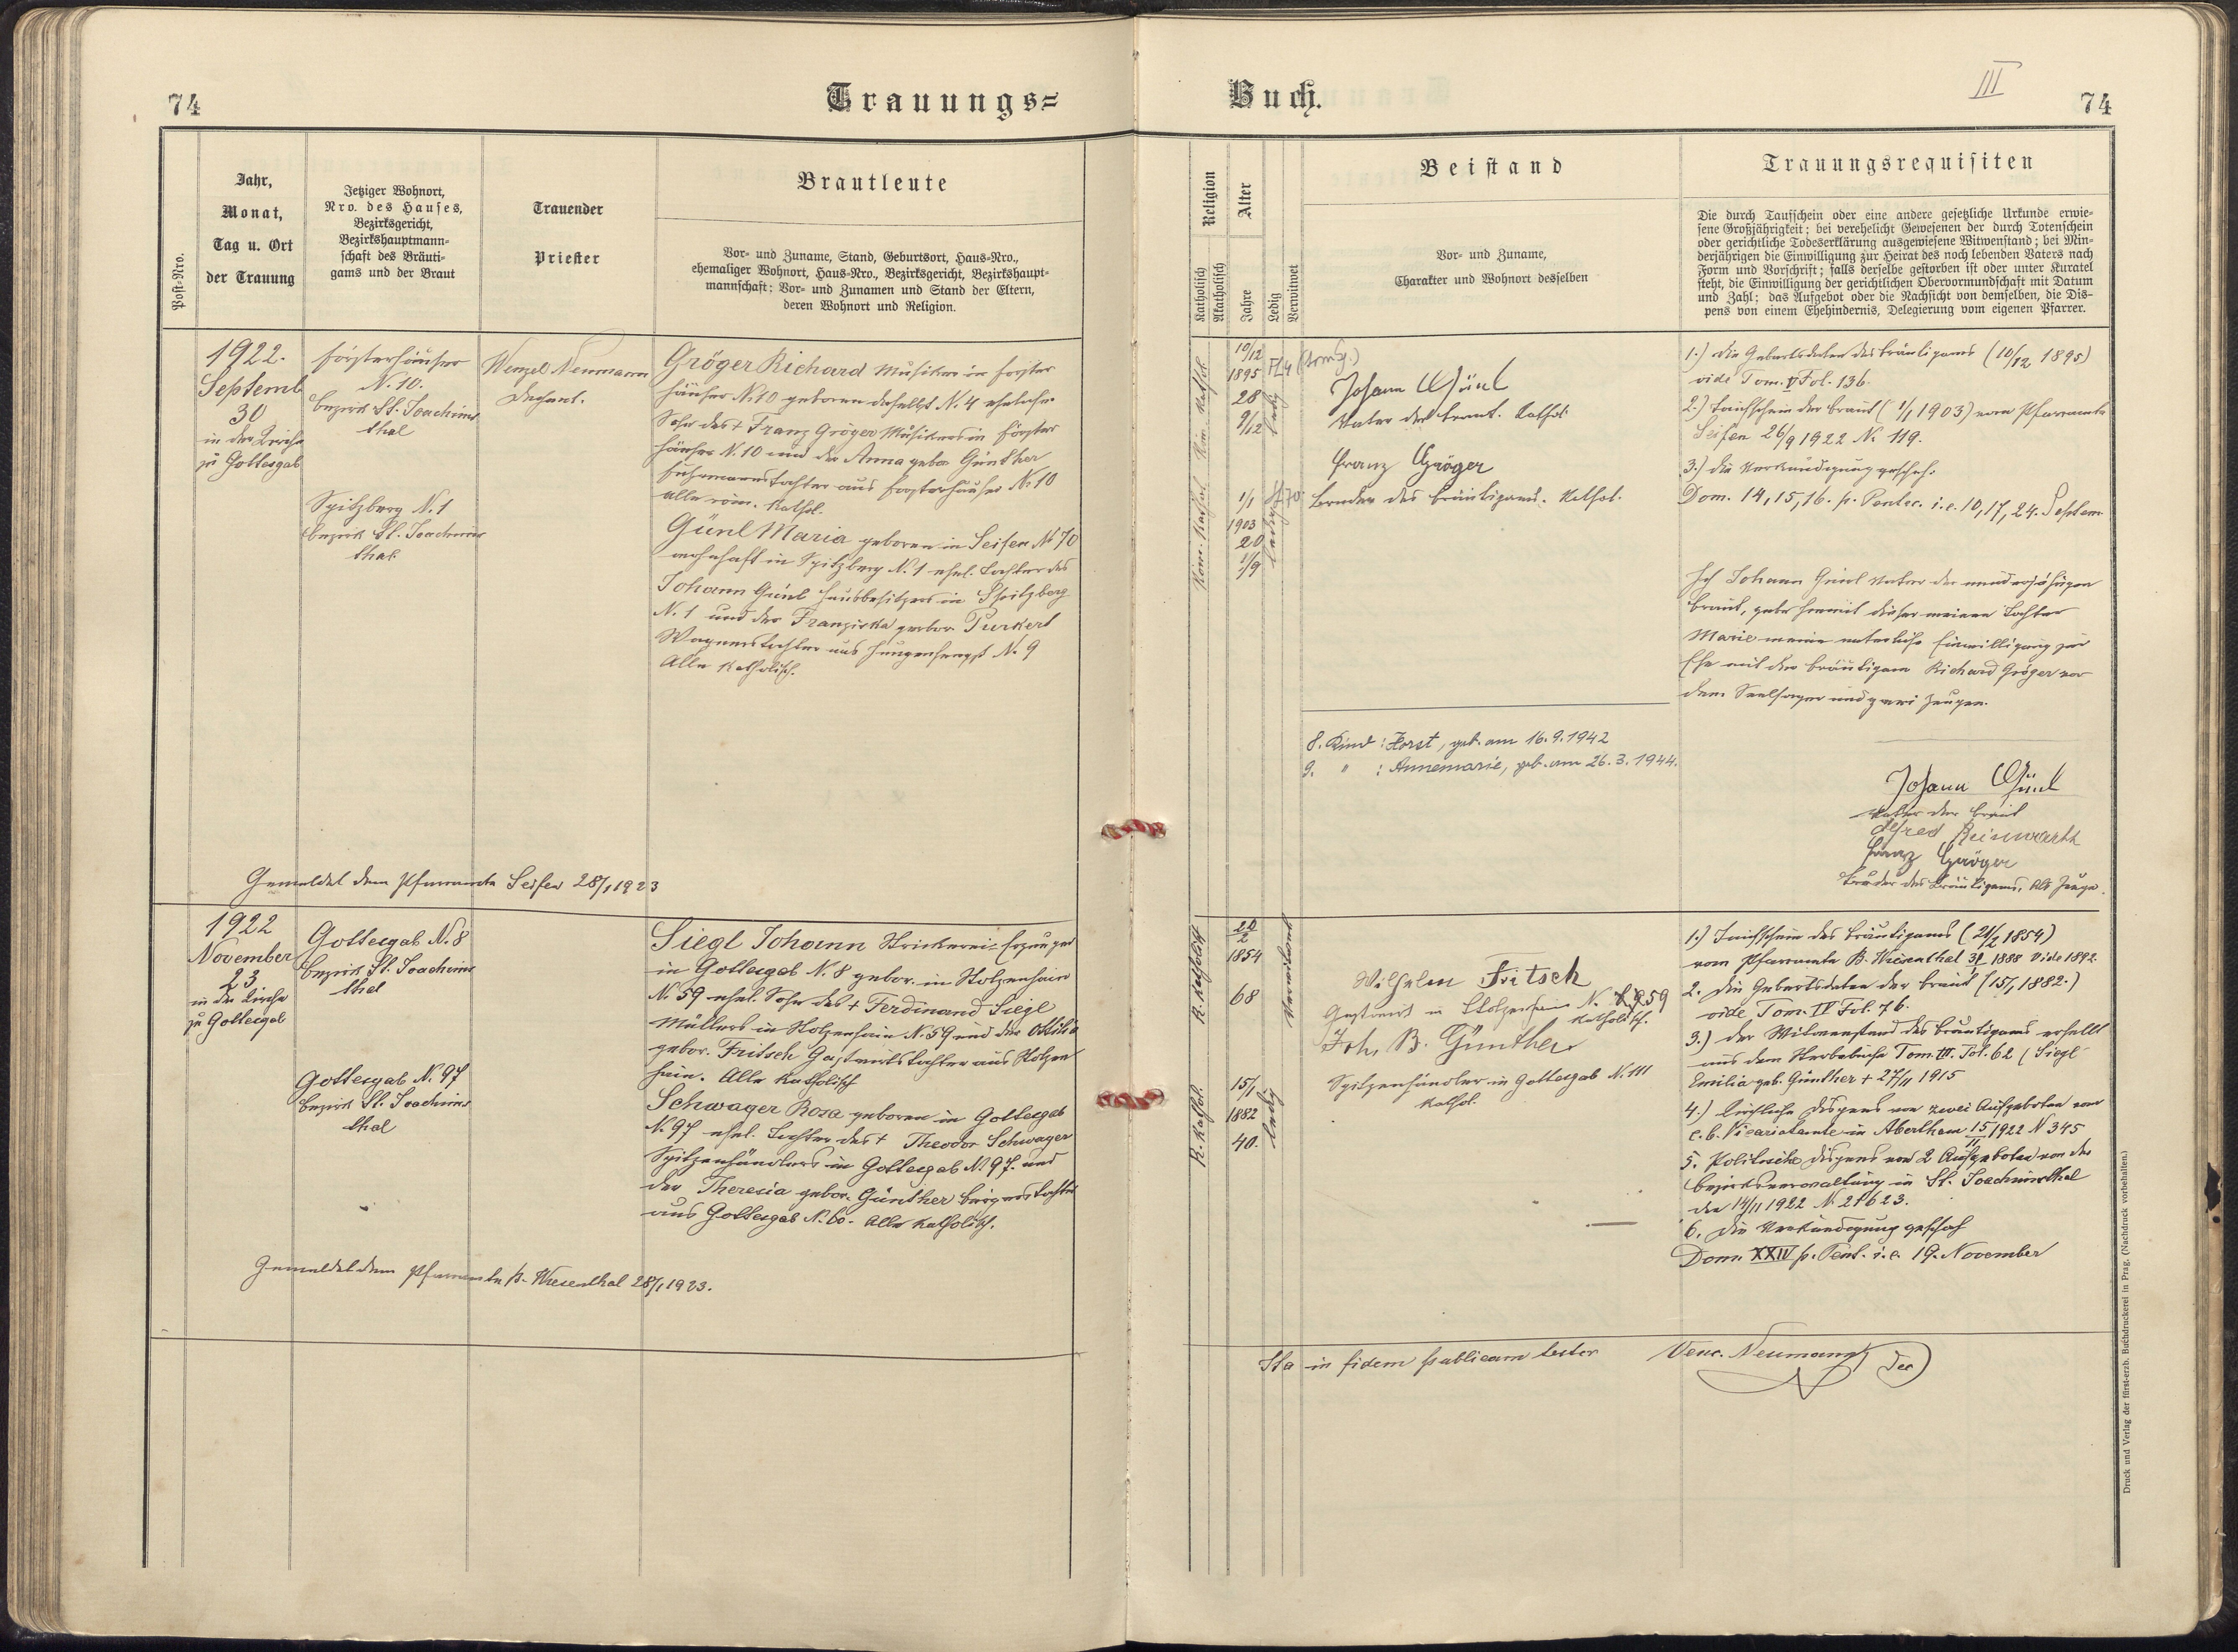 74
Trauungs=
Post=Nro.
Jahr,
Monat,
Tag u. Ort
der Trauung
Jetziger Wohnort,
Nro. des Hauses,
Bezirksgericht,
Bezirkshauptmann-
schaft des Bräuti-
gams und der Braut
Trauender
Priester
Brautleute
Vor- und Zuname, Stand, Geburtsort, Haus-Nro.,
ehemaliger Wohnort, Haus-Nro., Bezirksgericht, Bezirkshaupt-
mannschaft: Vor- und Zunamen und Stand der Eltern,
deren Wohnort und Religion.
1922.
Septemb
30
in der Kirche
zu Gottesgab
Försterhäuser
N. 10.
Bezirk St. Joachims
thal
Spitzberg N. 1
Bezirk St. Joachims
thal
Wenzel Neumann
Dechant.
Gröger Richard Musiker in Förster
häuser N. 10 geboren daselbst N. 4 ehelicher
Sohn des † Franz Gröger Musikers in Förster
häuser N. 10 und der Anna gebor Günther
Fuhrmannstochter aus Försterhäuser N. 10
alle röm. kathol.
Günl Maria geboren in Seifen N. 70
wohnhaft in Spitzberg N. 1 ehel. Tochter des
Johann Günl Hausbesitzers in Spitzberg
N. 1 und der Franziska gebor. Purkert
Wagnerstochter aus Hengstererben N. 9
Alle katholisch.
Gemeldet dem Pfarramte Seifen 28/1 1923
1922
November
23
in der Kirche
zu Gottesgab
Gottesgab N. 8
Bezirk St. Joachims
thal
Gottesgab N. 97
Bezirk St. Joachims
thal
Siegl Johann Strickerei-Erzeuger
in Gottesgab N. 8 gebor. in Stolzenhain
N. 59 ehel. Sohn des † Ferdinand Siegl
Müllers in Stolzenhain N. 59 und der Ottilia
gebor. Fritsch Gastwirtstochter aus Stolzen
hain. Alle katholisch
Schwager Rosa geboren in Gottesgab
N. 97 ehel. Tochter des † Theodor Schwager
Spitzenhändlers in Gottesgab N. 97. und
der Theresia gebor. Günther Bergerstochter
aus Gottesgab N. 60. Alle katholisch.
Gemeldet dem Pfarramte B. Wiesenthal 28/1 1923.
Buch.
III
74
Religion
Katholisch
Akatholisch
Alter
Jahre
Ledig
Verwitwet
Beistand
Vor- und Zuname,
Charakter und Wohnort desselben
Trauungsrequisiten
Die durch Taufschein oder eine andere gesetzliche Urkunde erwie-
sene Großjährigkeit; bei verehelicht Gewesenen der durch Totenschein
oder gerichtliche Todeserklärung ausgewiesene Witwenstand; bei Min-
derjährigen die Einwilligung zur Heirat des noch lebenden Vaters nach
Form und Vorschrift; falls derselbe gestorben ist oder unter Kuratel
steht, die Einwilligung der gerichtlichen Obervormundschaft mit Datum
und Zahl; das Aufgebot oder die Nachsicht von demselben, die Dis-
pens von einem Ehehindernis, Delegierung vom eigenen Pfarrer.
Röm. kathol.
10/12
1895
28
9/12
ledig
Johann Günl
Vater der Braut. kathol.
Franz Gröger
Bruder des Bräutigams. kathol.
Röm. kathol.
1/1
1903
20
1/9
ledig
8. Kind: Horst, geb. am 16.9.1942
9. " : Annemarie, geb. am 26.3.1944.
1.) Die Geburtsdaten des Bräutigams (10/12 1895)
vide Tom. V Fol. 136.
2.) Taufschein der Braut (1/1 1903) vom Pfarramte
Seifen 26/9 1922 N. 119.
3.) Die Verkündigung geschah
Dom. 14, 15, 16. p. Pentec. i. e. 10, 17, 24. Septem.
Ich Johann Günl Vater der minderjährigen
Braut, gebe hiemit dieser meiner Tochter
Marie meine väterliche Einwilligung zur
Ehe mit dem Bräutigam Richard Gröger vor
dem Seelsorger und zwei Zeugen.
Johann Günl
Vater der Braut
Alfred Reinwarth
Franz Gröger
Bruder des Bräutigams, als Zeuge.
R. katholisch
1854
68
Verwitwet
Wilhelm Fritsch
Gastwirt in Stolzenhain N. 59
katholisch.
Joh. B. Günther
Spitzenhändler in Gottesgab N. 111
kathol.
R. kathol.
15/1
1882
40.
ledig
1.) Taufschein des Bräutigams (21/2 1854)
vom Pfarramte B. Wiesenthal 1888 Vide 1892.
2. Die Geburtsdaten der Braut (15/1 1882.)
vide Tom. IV Fol. 76.
3.) Der Witwenstand des Bräutigams erhellt
aus dem Sterbebuche Tom. III. Fol. 62 (Siegl
Emilia geb. Günther † 27/11 1915
4.) Kirchliche Dispens von zwei Aufgeboten vom
e. b. Vicariatamte in Abertham 15/11 1922 N 345
5. Politische Dispens von 2 Aufgeboten von der
Bezirksverwaltung in St. Joachimsthal
den 14/11 1922 N. 21623.
6. Die Verkündigung geschah
Dom. XXIV p. Pent. i. e. 19. November
Ita in fidem publicam testor Venc. Neumann Dec
Druck und Verlag der fürst-erzb. Buchdruckerei in Prag. (Nachdruck vorbehalten.)